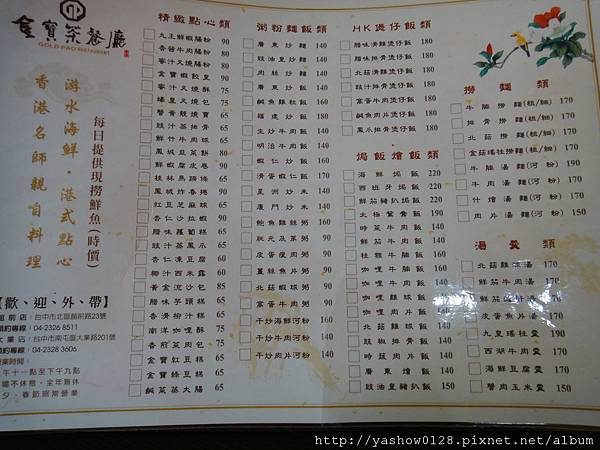 金寶茶餐廳
GOLD PAO RESTAURANT
游水海鮮・港式點心
香港名師親自料理
每日提供現撈鮮魚(時價)
【歡、迎、外、帶】
館前店:台中市北區館前路23號
預約專線:04-2328 8511
大業店:台中市南屯區大業路201號
預約專線:04-2328 3606
營業時間:
上午十一點至下午九點
精緻點心類
九王鮮蝦腸粉 90
香茜牛肉腸粉 80
蜜汁叉燒腸粉 80
金寶蝦餃皇 90
蜜汁叉燒酥 75
蠔皇叉燒包 75
蟹黃餃燒賣 75
豉汁蒸排骨 75
鮮竹牛肉球 75
鳳城韭菜餅 80
鮮蝦腐皮卷 90
桂林馬蹄條 65
鳳城炸春捲 90
紅豆芝麻球 65
杏仁沙拉蝦 90
臘味蘿蔔糕 65
豉汁蒸鳳爪 65
杏仁凍豆腐 65
椰汁西米露 65
黃金流沙包 85
臘味芋頭糕 65
香滑椰汁糕 65
南洋咖哩酥 75
香煎菜肉包 75
金寶紅豆糕 65
金寶綠豆糕 65
鹹菜蒸大腸 65
粥粉麵飯類
廣東炒麵 140
豉油皇炒麵 140
肉絲炒麵 140
廣東炒飯 140
鹹魚雞粒飯 140
福建炒飯 140
生炒牛肉飯 140
明治牛肉飯 140
蝦仁炒飯 140
滑蛋蝦仁飯 170
星洲炒米 140
廈門炒米 140
鮑魚雞絲粥 90
狀元及第粥 90
皮蛋瘦肉粥 90
薑絲魚片粥 90
北菇滑雞粥 90
窩蛋牛肉粥 90
干炒海鮮河粉 160
干炒牛肉河粉 140
干炒肉片河粉 140
HK煲仔飯類
臘味滑雞煲仔飯 180
臘味排骨煲仔飯 180
北菇滑雞煲仔飯 180
豉汁排骨煲仔飯 180
窩蛋牛肉煲仔飯 180
鹹魚肉餅煲仔飯 180
鳳爪排骨煲仔飯 180
焗飯燴飯類
海鮮焗飯 220
西班牙焗飯 220
鮮茄豬扒焗飯 220
北極鴛鴦飯 190
時菜牛肉飯 160
鮮茄牛肉飯 160
柱候牛腩飯 160
咖哩牛腩飯 160
咖哩雞球飯 160
咖哩牛肉飯 160
北菇雞球飯 160
豉椒排骨飯 160
時蔬肉片飯 160
廣東燴飯 160
豉油皇雞扒飯 150
撈麵類
牛腩撈麵(粗/細) 170
排骨撈麵(粗/細) 170
北菇撈麵(粗/細) 170
金菇瑤柱撈麵(粗/細) 190
牛腩湯麵(河粉) 170
牛肉湯麵(河粉) 170
什燴湯麵(河粉) 170
肉片湯麵(河粉) 150
湯羹類
北菇雞球湯 170
鮮茄牛肉湯 170
鮮茄肉片湯 170
皮蛋魚片湯 170
九皇瑤柱羹 170
西湖牛肉羹 170
海鮮豆腐羹 170
蟹肉玉米羹 150
http://yashow0128.pixnet.net/album